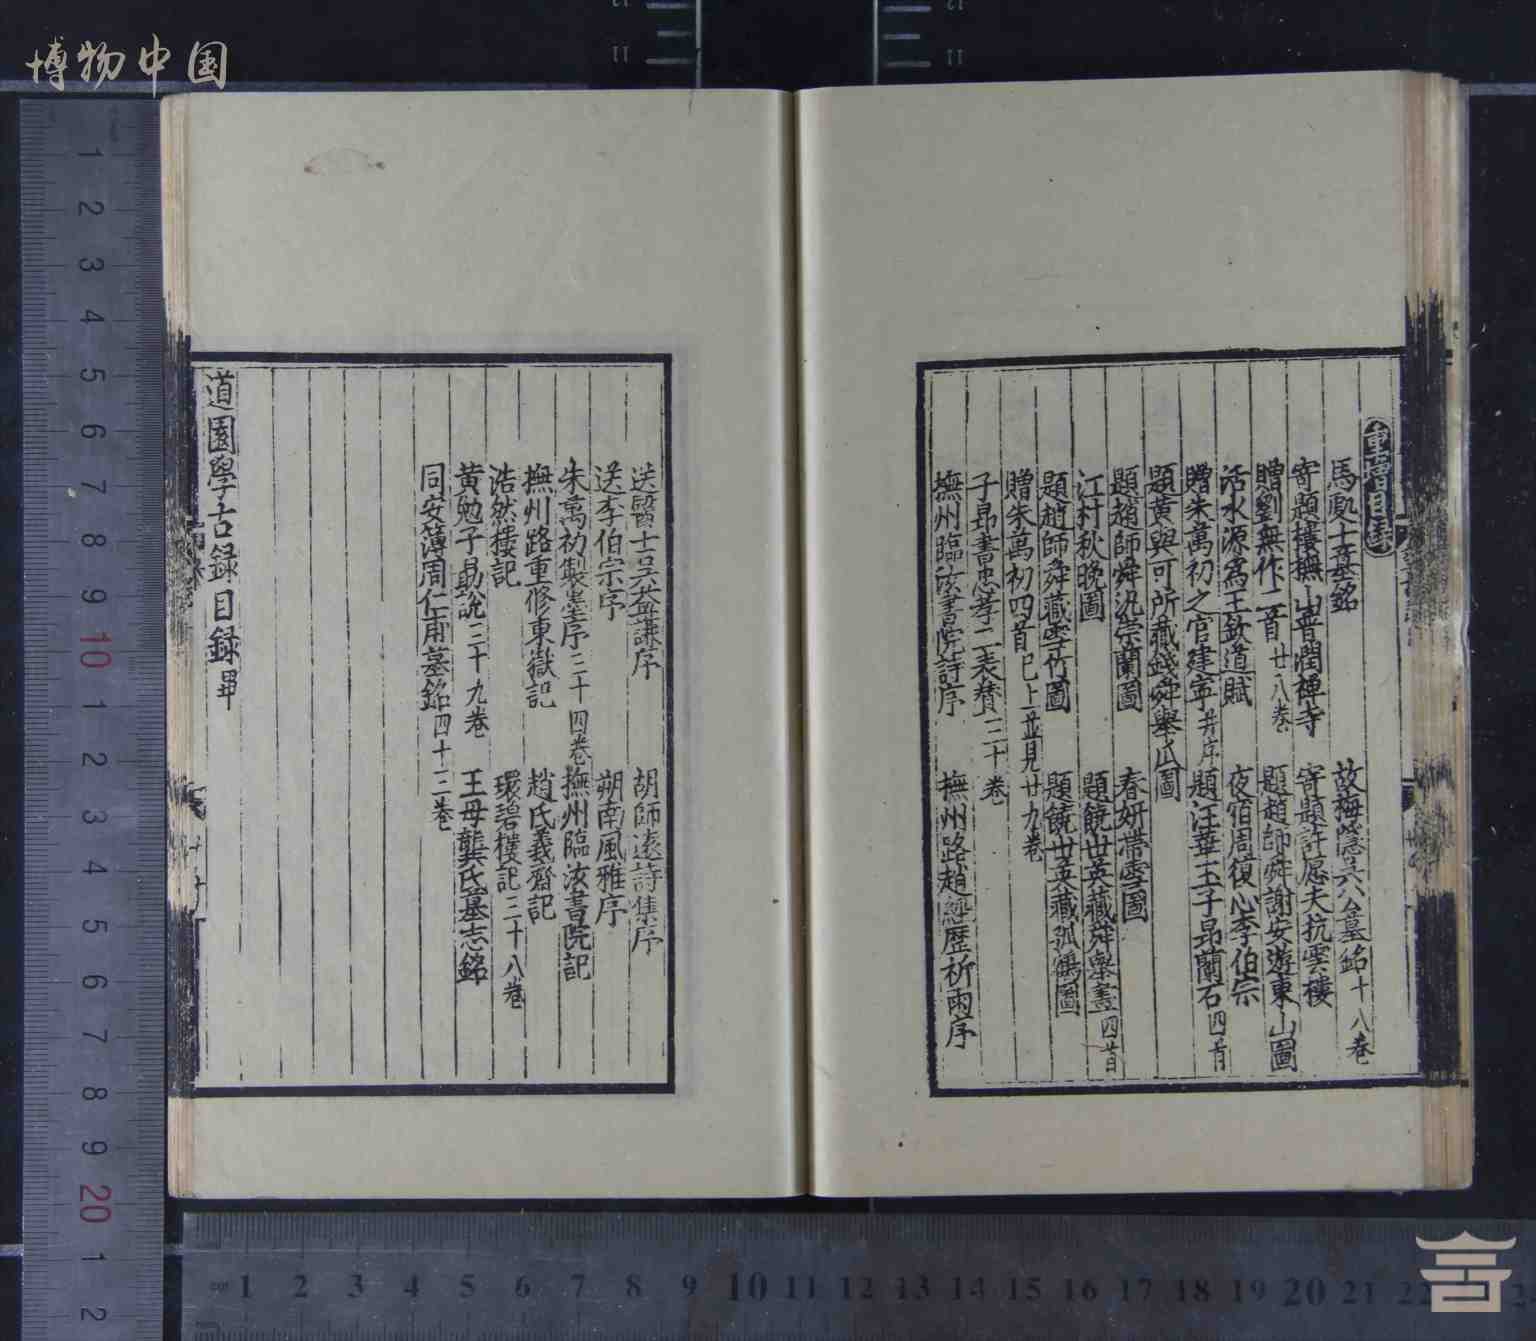 博物中国
重增目錄
馬鳳十墓銘　故梅隱吳六公墓銘十八卷
寄題樓撫山普潤禪寺　寄題許愿夫抗雲樓
贈劉無作二首廿八卷　題趙師舜謝安遊東山圖
活水源爲王欽道賦　夜宿周復心李伯宗
贈朱萬初之官建寧并序　題汪華玉子昂蘭石四首
題黃與可所藏錢舜舉山圖
題趙師舜汎崇蘭圖　春妍帶雲圖
江村秋晚圖　題饒世英藏舜舉畫四首
題趙師舜藏雪竹圖　題饒世英藏孤鶴圖
贈朱萬初四首已上並見廿九卷
子昂書忠孝二表贊三十卷
撫州臨汝書院詩序　撫州路趙經歷祈雨序
送醫士吳益謙序　胡師遠詩集序
送李伯宗序　朔南風雅序
朱萬初製墨序三十四卷　撫州臨汝書院記
撫州路重修東嶽記　趙氏義齋記
浩然樓記　環碧樓記三十八卷
黃勉子易說三十九卷　王母龔氏墓志銘
同安簿周仁甫墓銘四十三卷
道園學古録目録畢
1 2 3 4 5 6 7 8 9 10 1 2 3 4 5 6 7 8 9 20 1 2
1 2 3 4 5 6 7 8 9 10 11 12 13 14 15 16 17 18 19 20 21